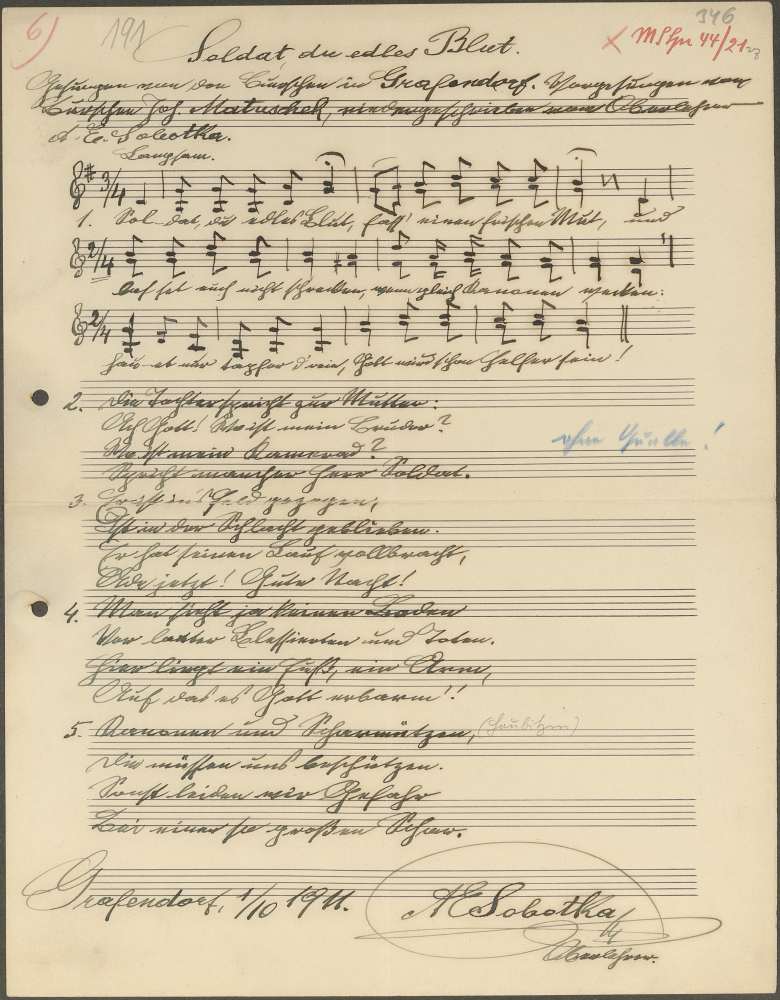 6)
191
346
X MShn 44/21
Soldat, du edles Blut.
Gesungen von den Burschen in Grafendorf. Vorgesungen vom
Burschen Joh. Matuschek, niedergeschrieben vom Oberlehrer
A. E. Sobotka.
Langsam.
1. Sol-dat, du edles Blut, fass' einen frischen Mut, und
laß set euch nicht schrecken, wenn gleich Kanonen wecken:
Haut er nur tapfer d'rein, Gott wird schon Helfer sein!
2. Die Tochter spricht zur Mutter:
Ach Gott! Wo ist mein Bruder?
Wo ist mein Kamerad?
Spricht mancher Herr Soldat.
ohne Quelle!
3. Er ist in's Feld gezogen,
Ist in der Schlacht geblieben.
Er hat seinen Lauf vollbracht,
Ade jetzt! Gute Nacht!
4. Man sieht ja keinen Boden
Vor lauter Blessierten und Toten.
Hier liegt ein Fuß, ein Arm,
Auf das es Gott erbarm'!
5. Kanonen und Scharmützen, (Haubitzen)
Die müssen uns beschützen.
Sonst leiden wir Gefahr
Bei einer so großen Schar.
Grafendorf, 1/10 1911.
AESobotka
Oberlehrer.